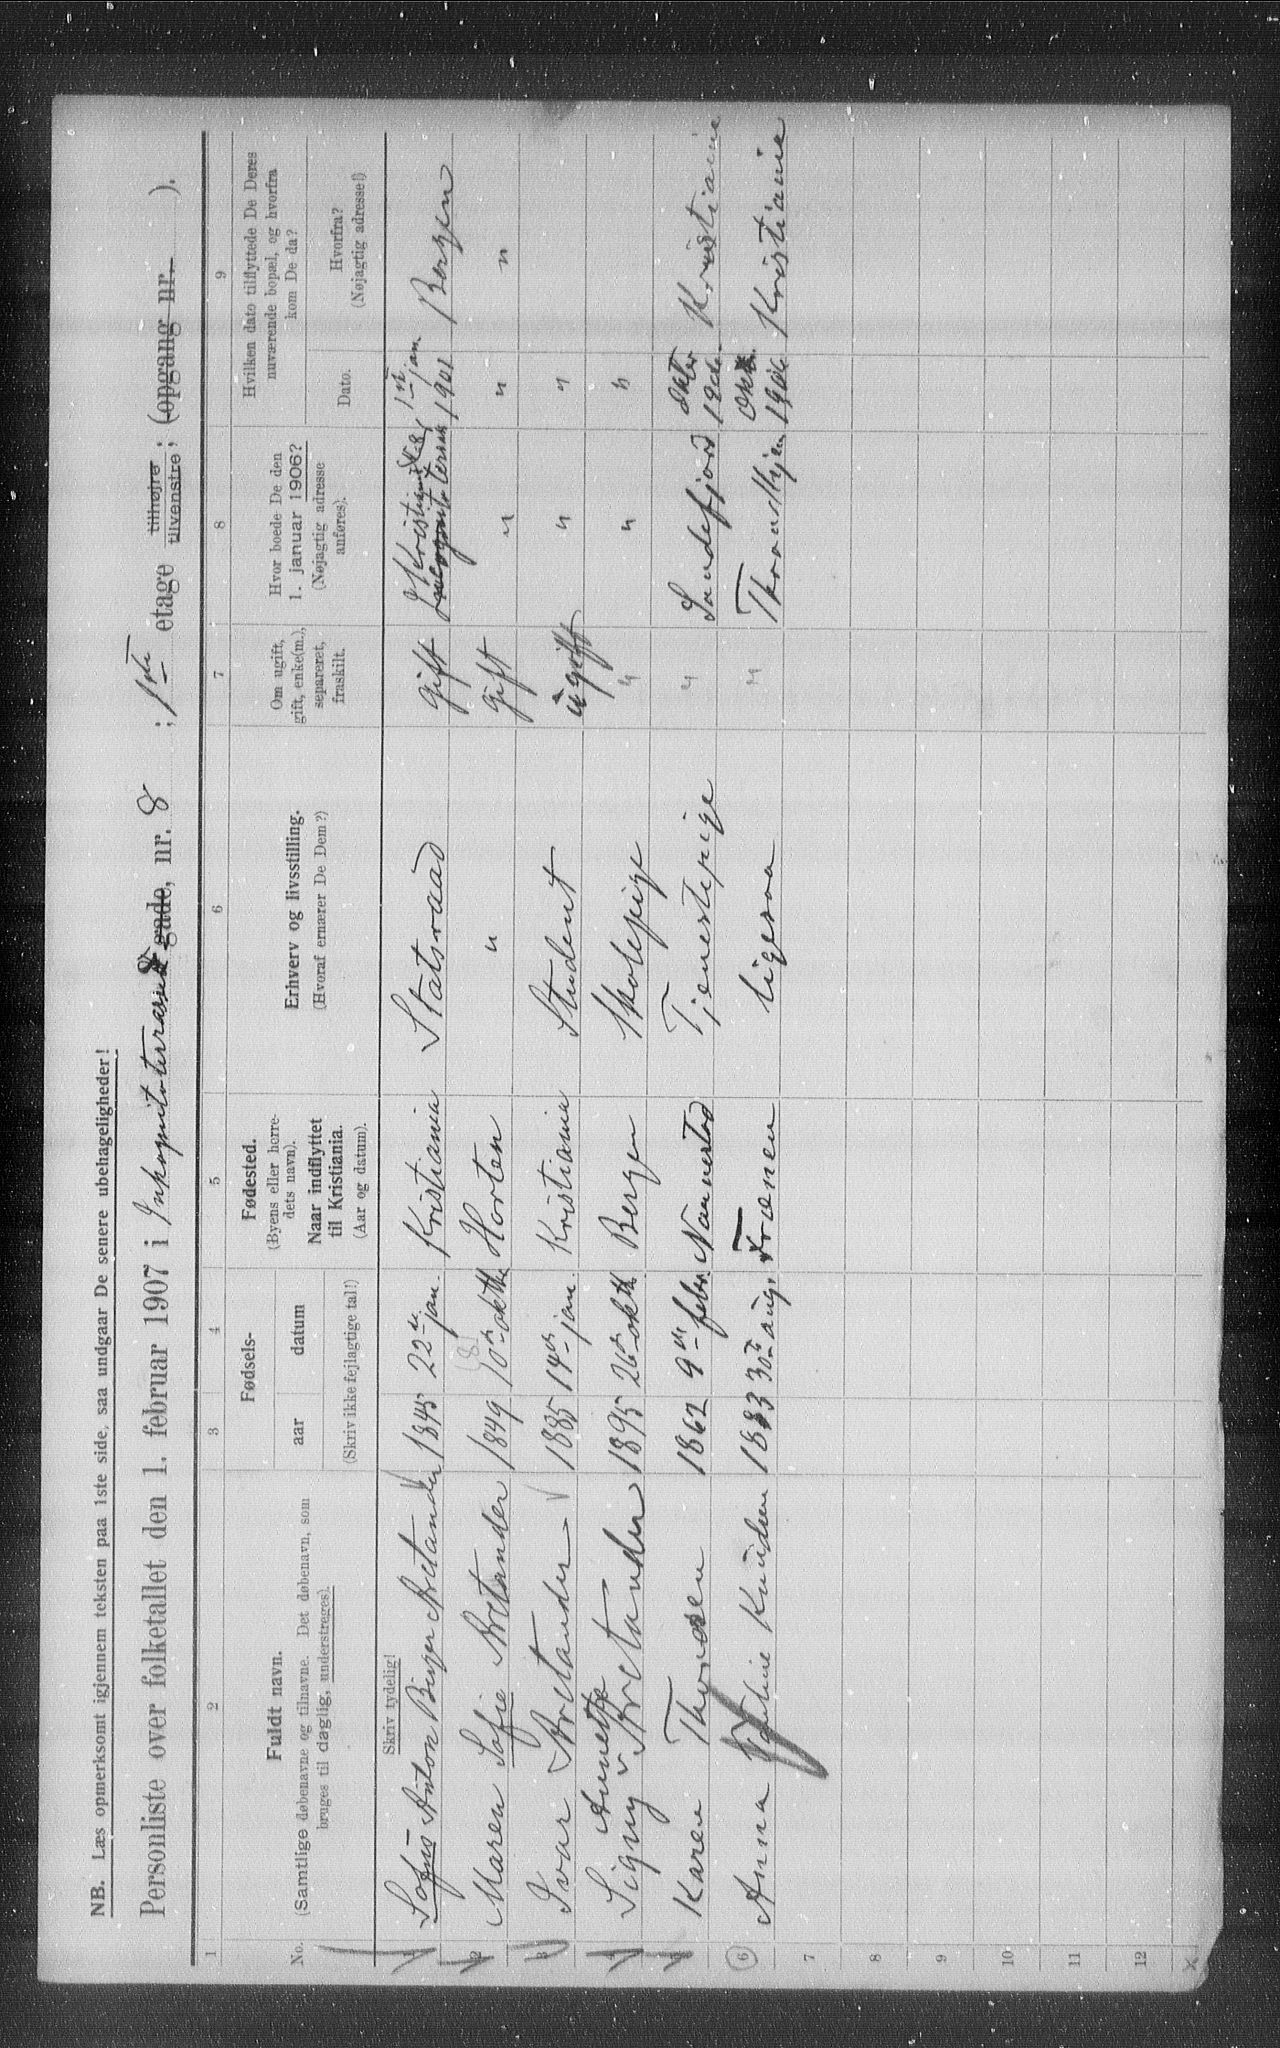 NB. Læs opmerksomt igjennem teksten paa 1ste side, saa undgaar De senere ubehageligheder!
Personliste over folketallet den 1. februar 1907 i Inkognitoterrasse gade, nr. 8 ; 1ste etage tilhøjre tilvenstre; (opgang nr. ).
1 2 3 4 5 6 7 8 9
No.
Fuldt navn.
(Samtlige døbenavne og tilnavne. Det døbenavn, som
bruges til daglig, understreges).
Skriv tydelig!
Fødsels-
aar datum
(Skriv ikke fejlagtige tal!)
Fødested.
(Byens eller herre-
dets navn).
Naar indflyttet
til Kristiania.
(Aar og datum).
Erhverv og livsstilling.
(Hvoraf ernærer De Dem?)
Om ugift,
gift, enke(m.),
separeret,
fraskilt.
Hvor boede De den
1. januar 1906?
(Nøjagtig adresse
anføres).
Hvilken dato tilflyttede De Deres
nuværende bopæl, og hvorfra
kom De da?
Dato.
Hvorfra?
(Nøjagtig adresse!)
1 Sofus Anton Birger Arctander 1845 22 jan. Kristiania Statsraad gift I Kristiania 1ste jan 1901 Bergen
2 Maren Sofie Arctander 1849 10 oktbr Horten " gift " " "
3 Ivar Arctander 1885 14 jan. Kristiania Student ugift " "
4 Signy Annette Arctander 1895 26 oktb Bergen Skolepige " " "
5 Karen Thoresen 1862 9 febr. Nannestad Tjenestepige " Sandefjord Oktbr 1906 Kristiania
6 Anna Pauline Knudsen 1883 30 aug. Frænen ligesaa " Throndhjem 1906 Kristiania
7
8
9
10
11
12